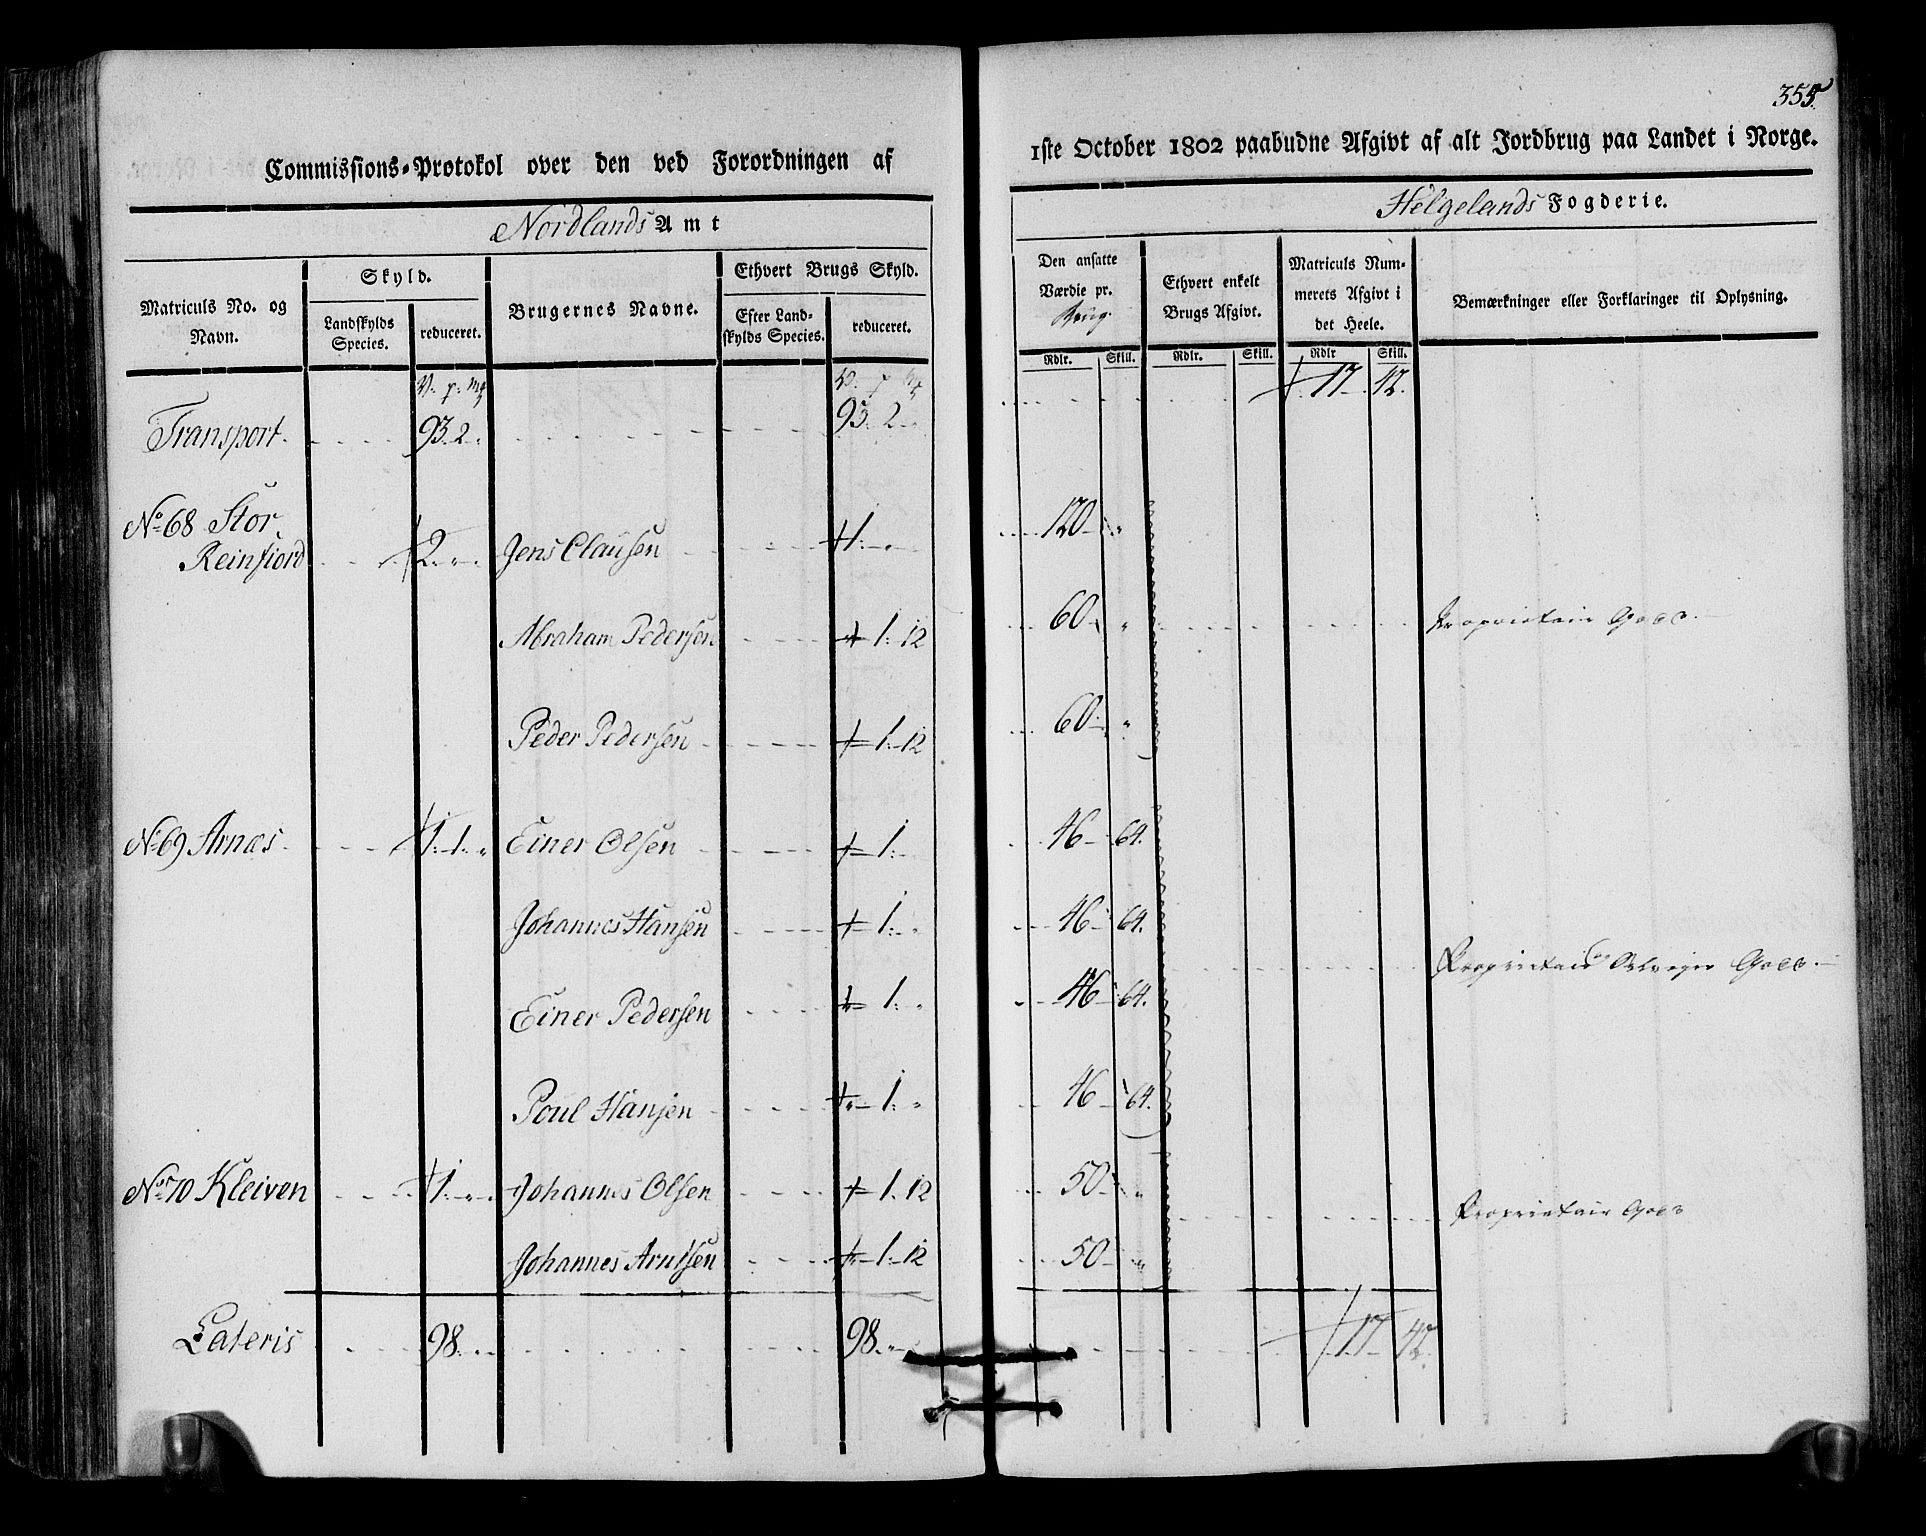 355.
Commissions-Protokol over den ved Forordningen af
1ste October 1802 paabudne Afgivt af alt Jordbrug paa Landet i Norge.
Nordlands Amt
Helgelands Fogderie.
Matriculs No. og Navn.
Skyld.
Landskylds Species.
reduceret.
Brugernes Navne.
Ethvert Brugs Skyld.
Efter Landskylds Species.
reduceret.
Den ansatte Værdie pr. Brug.
Ethvert enkelt Brugs Afgivt.
Matriculs Nummerets Afgivt i det Heele.
Bemærkninger eller Forklaringer til Oplysning.
Rdlr. Skill. Rdlr. Skill. Rdlr Skill.
Transport 93. 2. 93. 2 17 42.
No. 68 Stor
Reinfiord 2. Jens Clausen 1. 120
Abraham Pedersen 1. 12 60 Proprietair Gods.
Peder Pedersen 1. 12 60
No. 69 Arnæs 1. 1. Einer Olsen 1. 46 64.
Johannes Hansen 1. 46 64.
Einer Pedersen 1. 46 64. Proprietair Gods.
Poul Hansen 1. 46 64.
No. 70 Kleiven 1. Johannes Olsen 1. 12 50
Proprietair Gods
Johannes Arntsen 1. 12 50
Lateris 98. 98. 17 42.